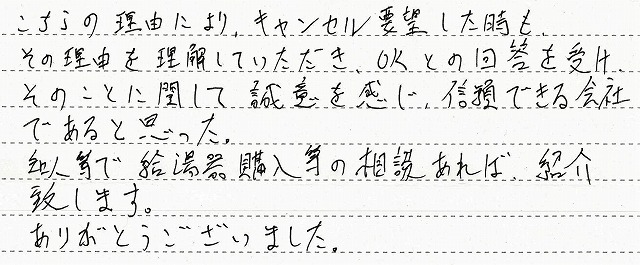 こちらの理由により、キャンセル要望した時も、
その理由を理解していただき、OKとの回答を受け、
そのことに関して誠意を感じ、信頼できる会社
であると思った。
知人等で給湯器購入等の相談あれば、紹介
致します。
ありがとうございました。